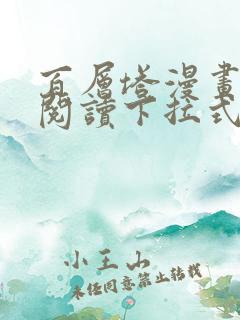 百層塔漫畫
閱讀下拉式
小王山
未經同意禁止轉載